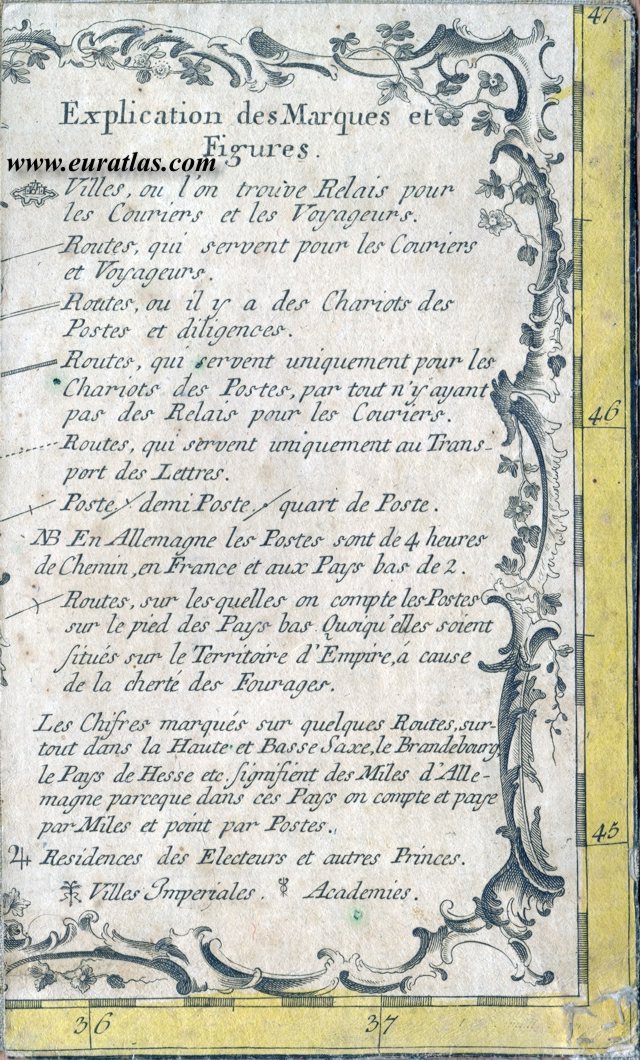 47
Explication des Marques et
Figures.
www.euratlas.com
Villes, ou l'on trouve Relais pour
les Couriers et les Voyageurs.
Routes, qui servent pour les Couriers
et Voyageurs.
Routes, ou il y a des Chariots des
Postes et diligences.
Routes, qui servent uniquement pour les
Chariots des Postes, par tout n'y ayant
pas des Relais pour les Couriers.
46
Routes, qui servent uniquement au Trans-
port des Lettres.
Poste demi Poste. quart de Poste.
NB En Allemagne les Postes sont de 4 heures
de Chemin, en France et aux Pays bas de 2.
Routes, sur lesquelles on compte les Postes
sur le pied des Pays bas Quoiqu'elles soient
situés sur le Territoire d'Empire, á cause
de la cherté des Fourages.
Les Chifres marqués sur quelques Routes, sur-
tout dans la Haute et Basse Saxe, le Brandebourg
le Pays de Hesse etc. signifient des Miles d'Alle-
magne parceque dans ces Pays on compte et paye
par Miles et point par Postes.
45
Residences des Electeurs et autres Princes.
Villes Imperiales. Academies.
36 37